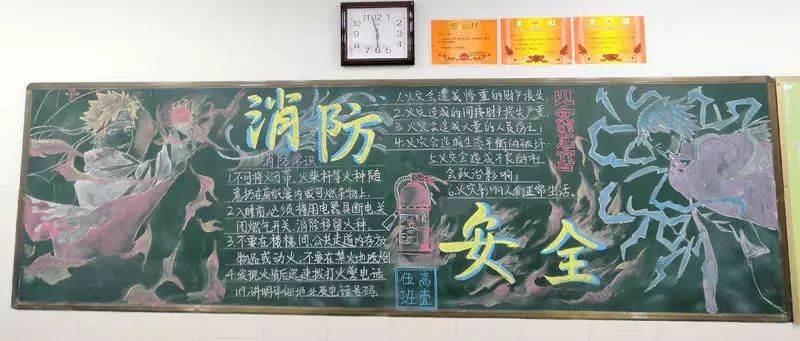 消防
安全
消防常识
1.不可将烟蒂、火柴杆等火种随
意扔在废纸篓内或可燃杂物上.
2.入睡前,必须将用电器具断电,关
闭燃气开关,消除移留火种.
3.不要在楼梯间、公共走道内存放
物品或动火,不要在禁火地吸烟
4.发现火情后迅速拨打火警电话
119,讲明详细地址及电话号码.
火灾的危害
1.火灾会造成惨重的财产损失,
2.火灾造成的间接财产损失严重,
3.火灾会造成大量的人员伤亡,
4.火灾会造成生态平衡的破坏
5.火灾会造成不良的社
会政治影响,
6.火灾影响人们正常生活.
高壹
伍班